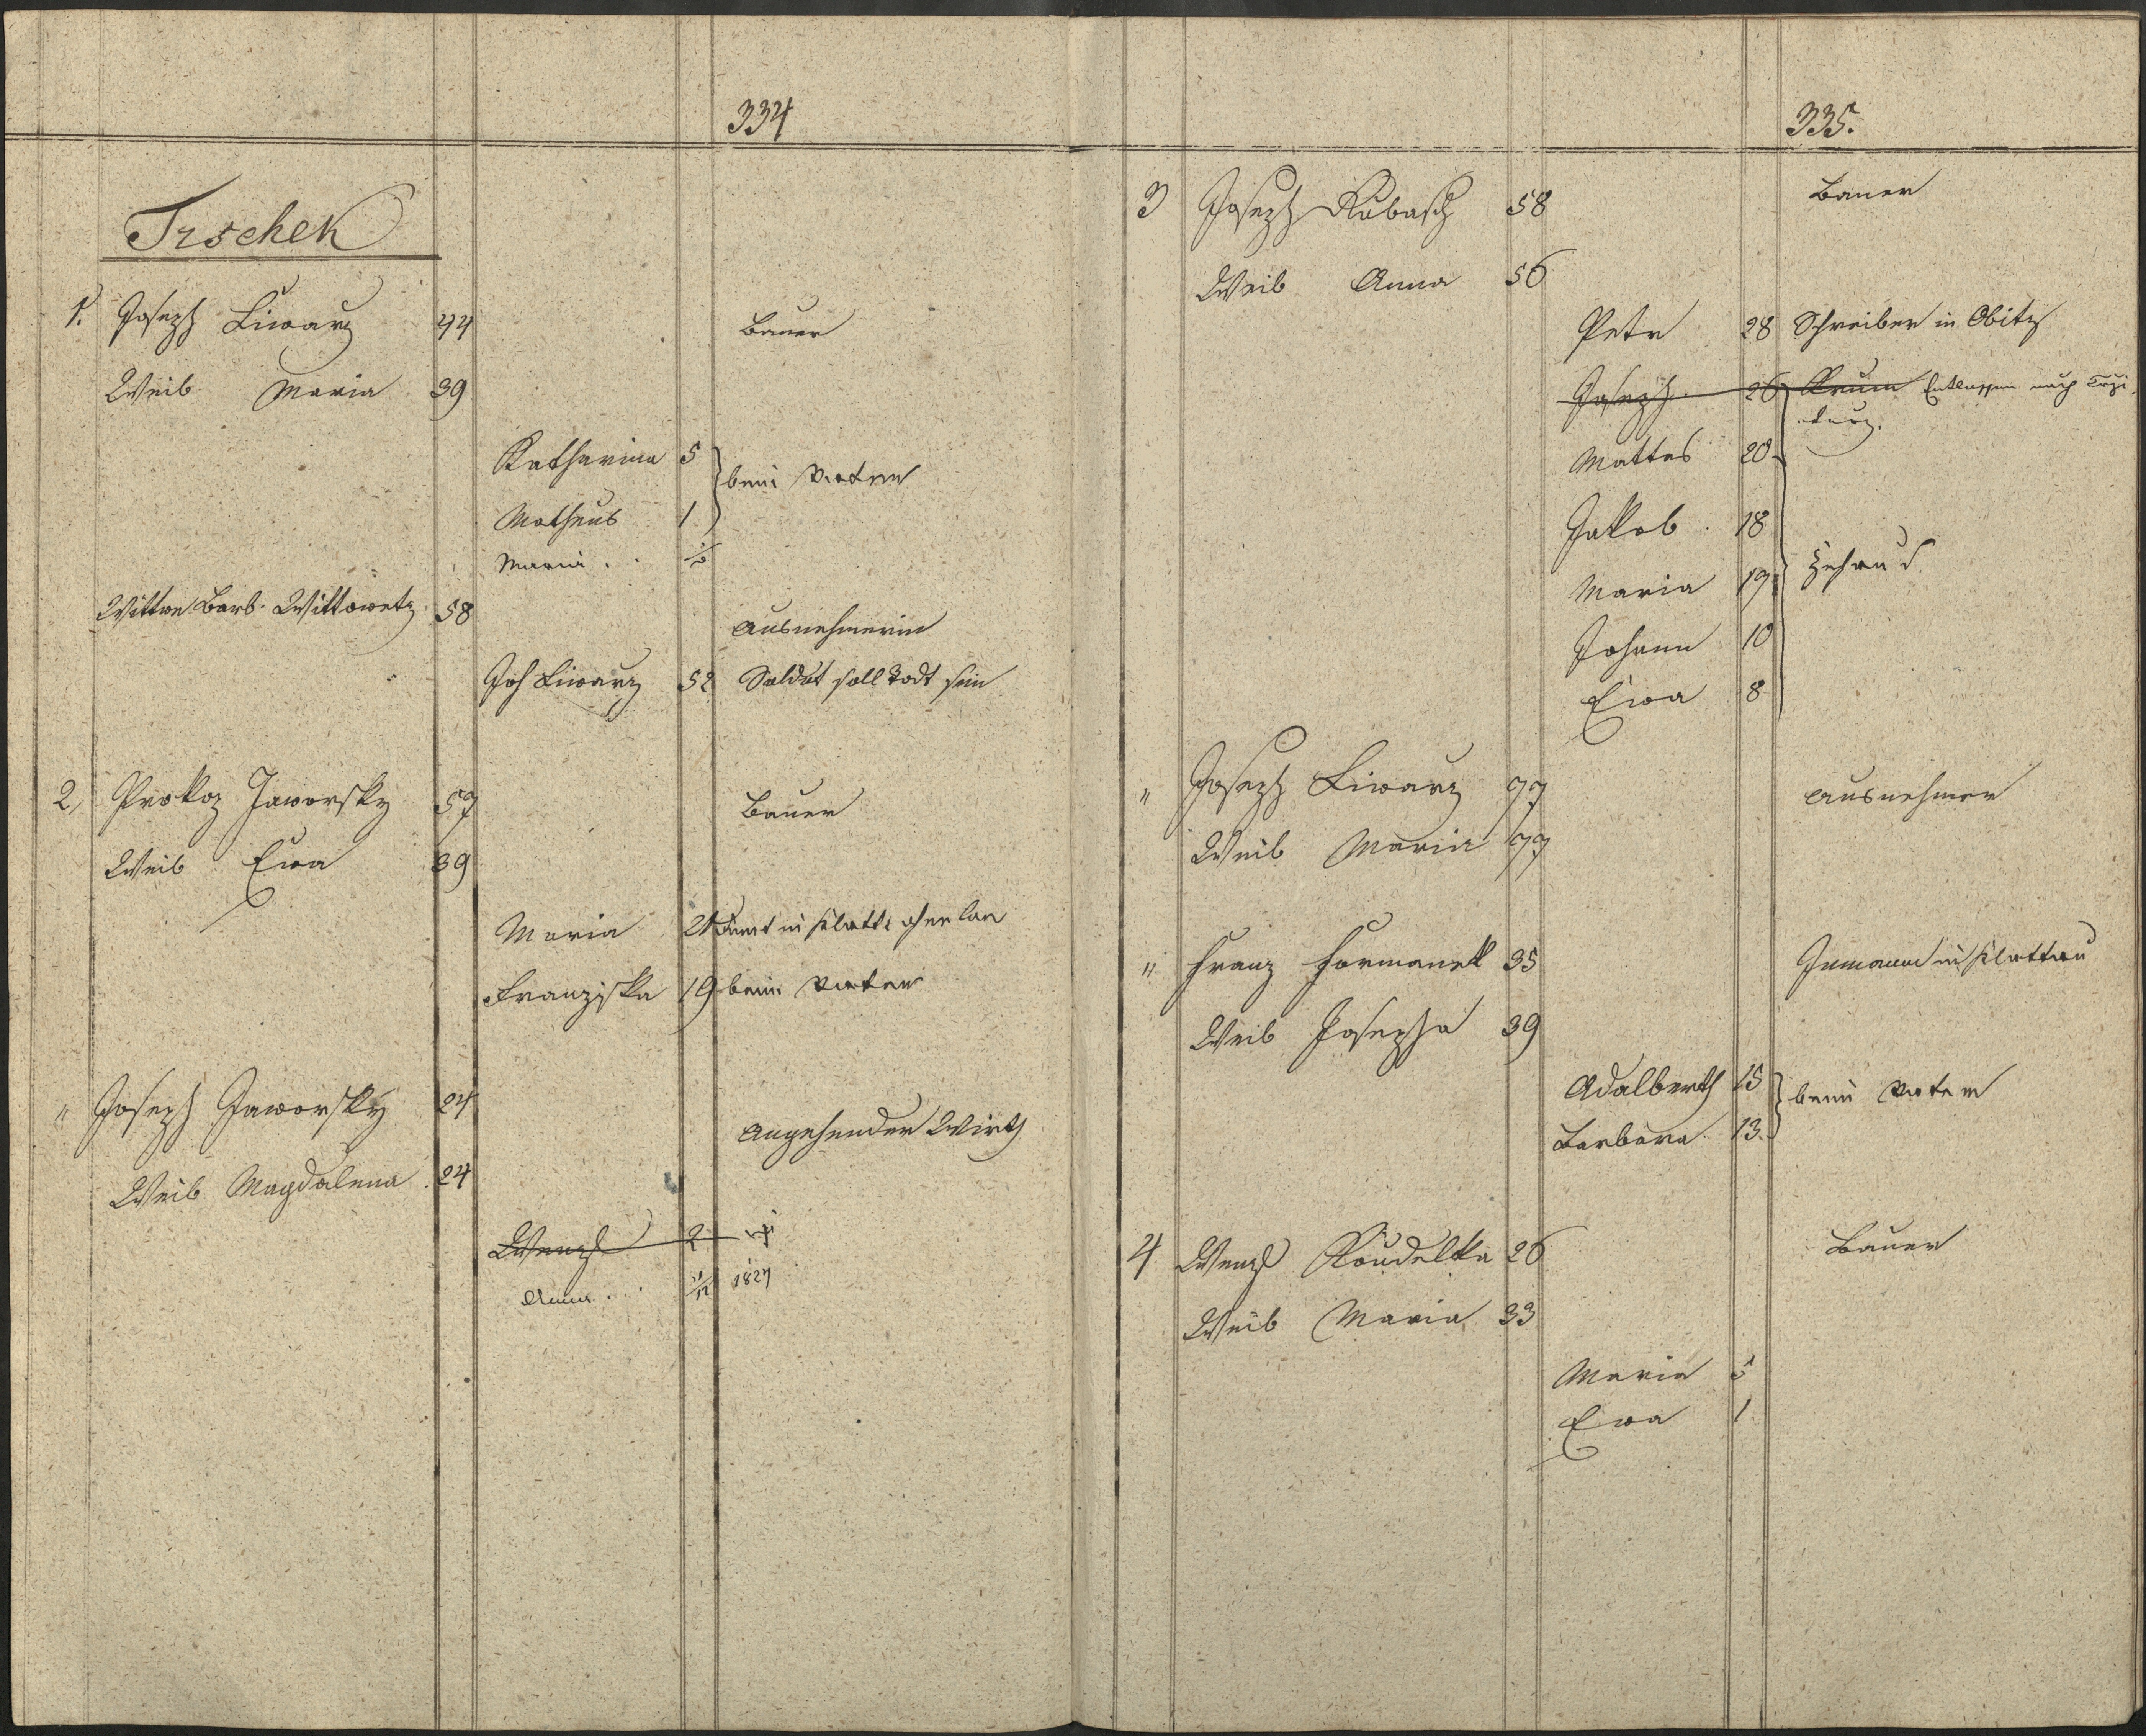 334
Trschek
1. Joseph Liwarz 44 Bauer
Weib Maria 39
Katharina 5
beim Vatern
Matheus 1
Maria . . 1/2
Wittwe Barb. Wittowetz 58
Ausnehmerin
Joh Liwarz 52 Soldat soll Todt sein
2, Prokop Jaworsky 57 Bauer
Weib Ewa 39
Maria 21 dient in
Franziska 19 beim Vatern
" Joseph Jaworsky 24
Angehender Wirth
Weib Magdalena 24
Wenzl 2
Anna . . . 1/12 1827
335.
3 Joseph Kubasch 58 Bauer
Weib Anna 56
Petr 28 Schreiber in Obitz
Joseph 26 Entlassen nach
Mattes 20
Jakob 18
Maria 19 Zuhaus
Johann 10
Ewa 8
" Joseph Liwarz 77 Ausnehmer
Weib Maria 77
" Franz Formanek 35 Inmann in Klattau
Weib Josepha 39
Adalberth 15
beim Vatern
Barbara 13
4 Wenzl Koudelka 26 Bauer
Weib Maria 33
Maria 5
Ewa 1